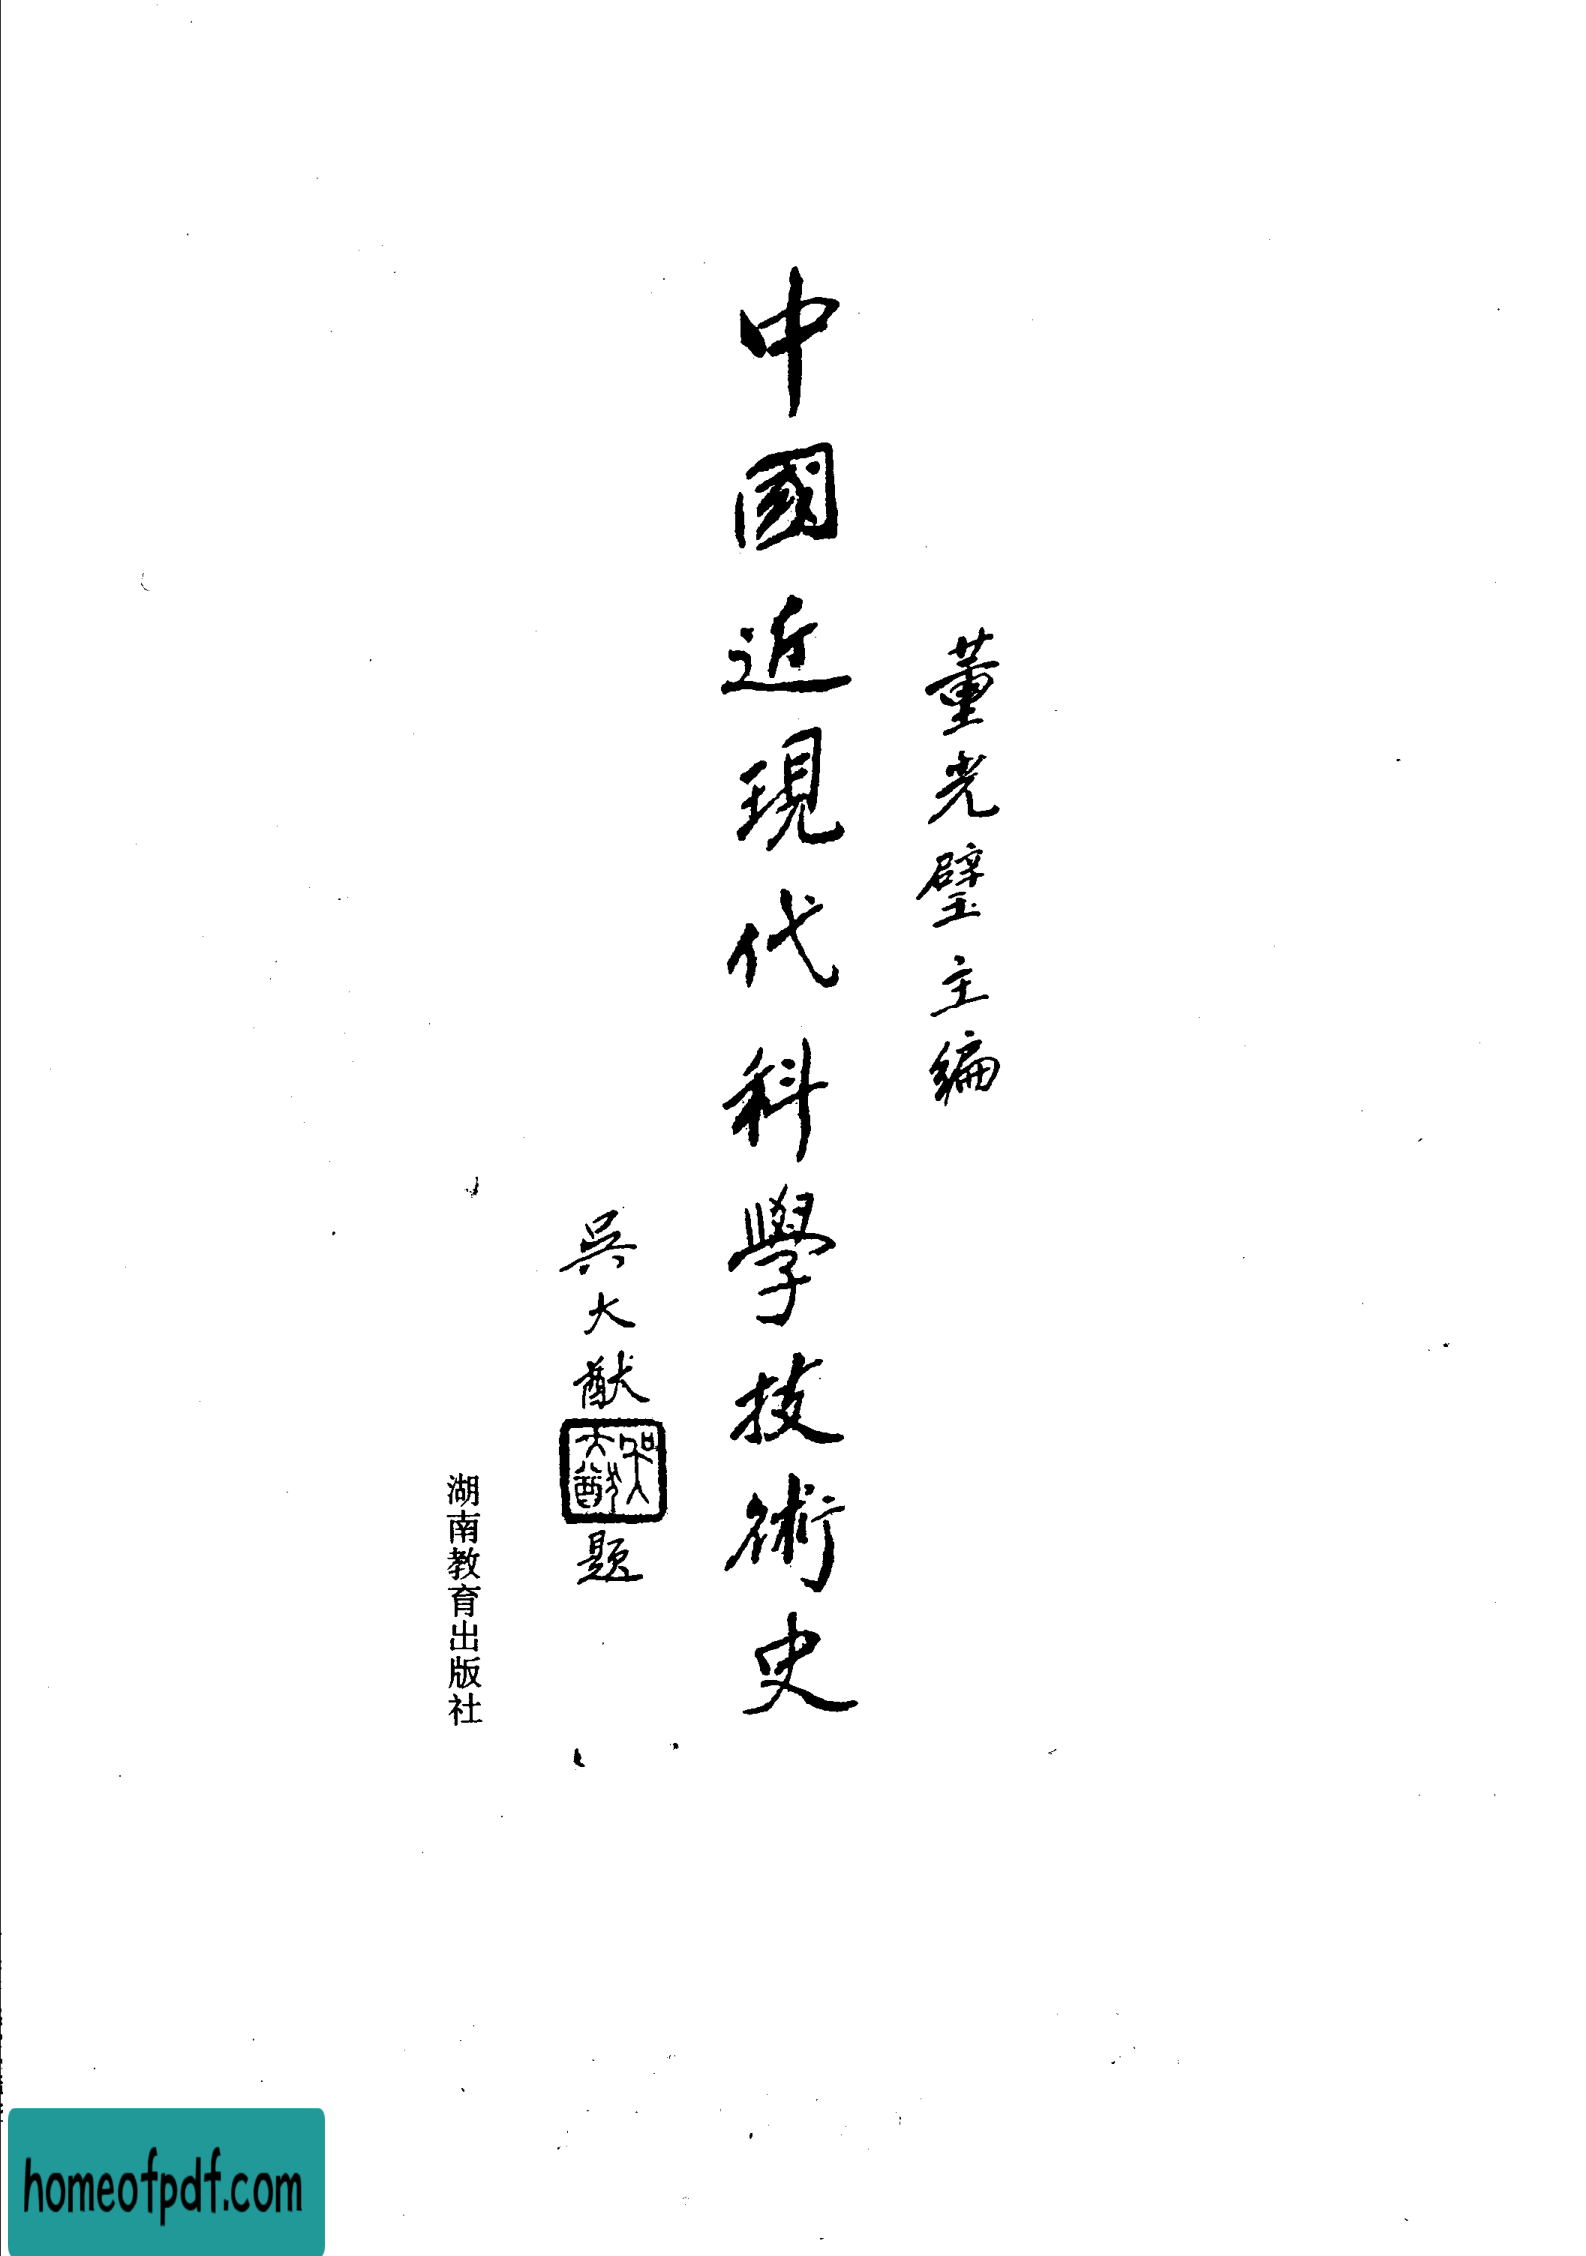 董光璧主编
中國近現代科學技術史
吳大猷
吳大猷
題
湖南教育出版社
homeofpdf.com